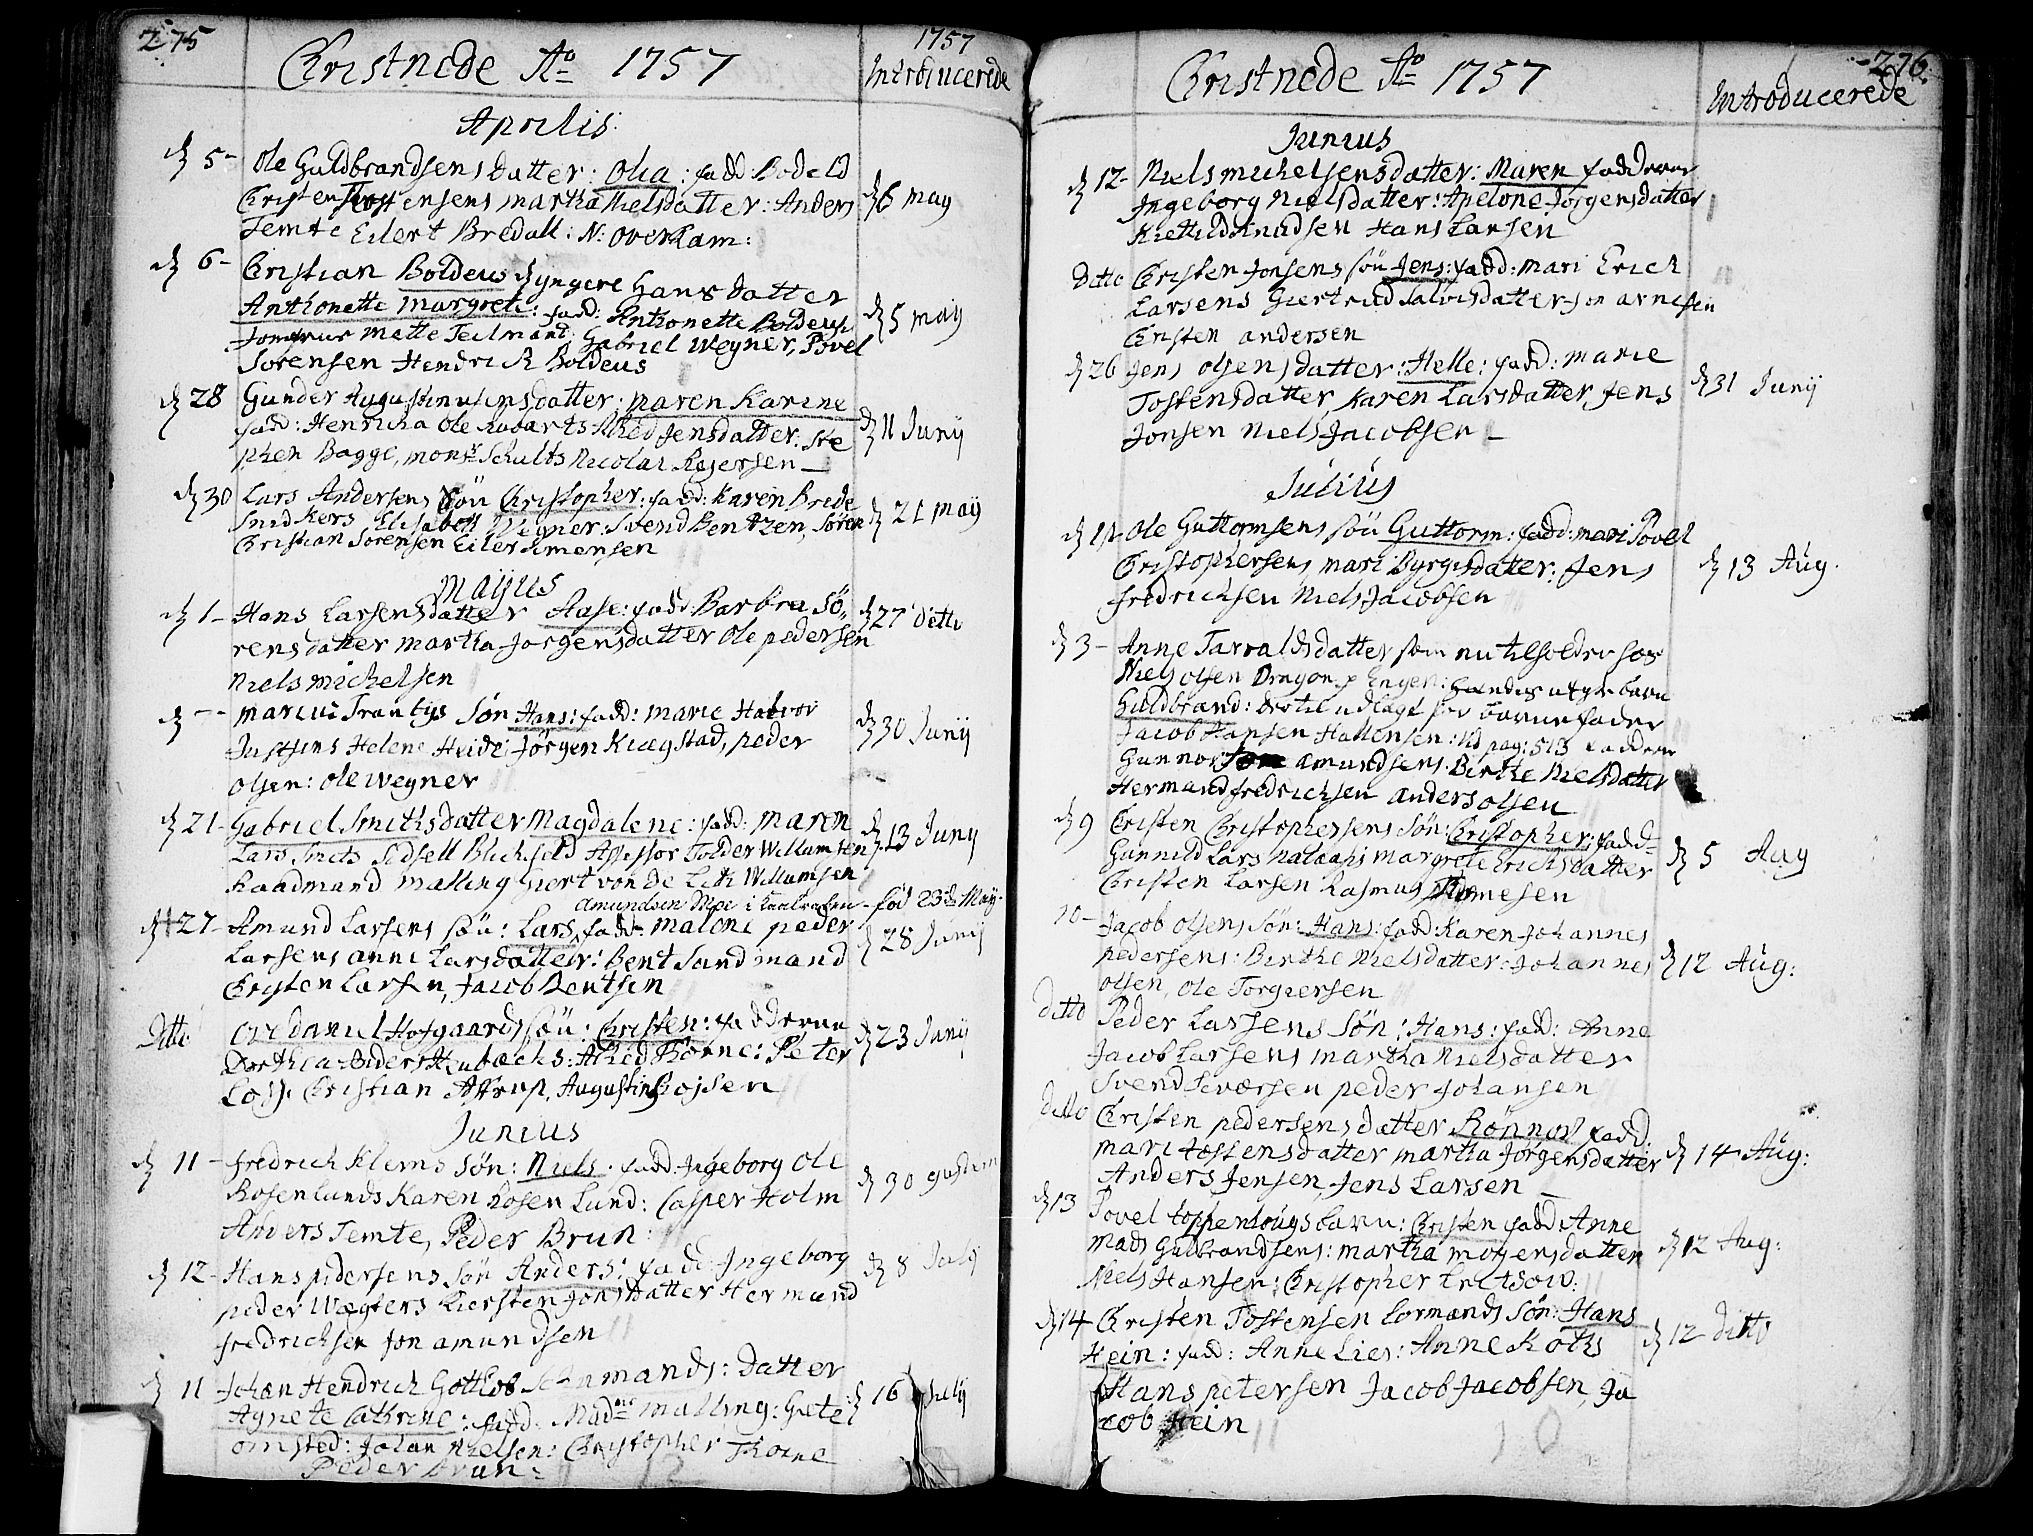 275
Christnede Ao 1757
1757
Introducerede
Aprilis
d 5 - Ole Guldbrandsens datter: Olia: fadd: Bodeld
Christen Tostensens Martha Nielsdatter: Anders
Temte Eilert Bredall: N: Overkam:
d 6 may
d 6 - Christian Boldeus dyngere Hans datter
Anthonette Margrete: fadd: Anthonette Boldeus
Jomfrue Mette Teilmand, Gabriel Wegner, Povel
Sorensen Hendrich Boldeus
d 5 maij
d 28 Gunder Augustinusens datter: Maren Karine
fadd: Henricka Ole Robarts Jensdatter: Ste
phen Bagge, Monsr Schults Nicolai Rejersen
d 11 Junij
d 30 Lars Andersens søn Christopher: fadd: Karen Brede
Snidkers Elisabeth Wegner: Svend Bentzen, Sören
Christian Sorensen Eiler Simensen
d 21 maij
Maijus
d 1 - Hans Larsens datter Aase: fadd: Barbra Sö-
rensdatter Martha Jorgensdatter Ole pedersen
Niels Michelsen
d 27 ditto
d -- Marius Trantys Søn Hans: fadd: Marie Halvor
Justsens Helene Heide: Jørgen Kragstad, peder
Olsen: Ole Wegner
d 30 Junij
d 21 - Gabriel Smiths datter Magdalene: fadd: Maren
Lars Smits Sidsell Blichfeld Assessor Tolder Willumsen
Raadmand Malling Giert von de Lith Willumsen
d 13 Junij
Amundsen - fød 23de Maij
d 27 - Amund Larsens søn: Lars, fadd: Maleni peder
Larsens Anne Larsdatter: Bent Sandmand
Christen Larsen, Jacob Bentsen
d 28 Junij
Ditto Ove Daniel Hofgaards søn: Christen: fadderne
Dorthea Anders Heubachs: Børne: Peter
Loss: Christian Aftrup, Augustin Bojsen
d 23 Junij
Junius
d 11 - Fredrich Klems Søn: Niels: fadd: Ingeborg Ole
Rosenlunds Karen Rosenlund: Casper Holm
Anders Temte, Peder Brun
d 30
d 12 - Hans pedersens Søn Anders: fadd: Ingeborg
peder Wægters Kiersten Jonsdatter Hermand
Fredrichsen Jon Amundsen
d 8 Julij
d 11 Johan Hendrich Gottlob mands: datter
Agnete Cathrine: fadd: Madme Malling: Grete
Omsted: Johan Nielsen: Christopher Thorne
Peder brun
d 16 Julij
276
Christnede Ao 1757
Introducerede
Junius
d 12 - Niels Michelsens datter: Maren fadderne
Ingeborg Nielsdatter: Apelone Jorgensdatter
Kiettild Knudsen Hans Larsen
Ditto Christen Jonsens søn Jens: fadd: Mari Erich
Larsens Giertrud Salvisdatter Jon Arnesen
Christen Andersen
d 26 Jens Olsens datter: Helle: fadd: Marie
Tostensdatter, Karen Larsdatter Jens
Jonsen Niels Jacobsen
d 31 Junij
Julius
d 1 Ole Guttormsens søn Guttorm: fadd: Mari Povel
Christophersens Mari Byrgisdatter: Jens
Fredrichsen Niels Jacobsen
d 13 Aug.
d 3 - Anne Tarraldsdatter som nu tilholder hos
Niels Olsen Dragon p Engen: hendes uægte barn
Guldbrand: dertil udlagt for barnefader
Jacob Hansen Hallensen: Vid pag: 513 Fadderne
Gunnor Amundsens. Birthe Nielsdatter
Hermand Fredrichsen Anders Olsen
d 9 Christen Christophersens Søn: Christopher: fadd-
Gunnild Lars Margrete Erichsdatter
Christen Larsen Rasmus
d 5 Aug
10 - Jacob Olsens Søn: Hans: fadd: Karen Johannes
pedersens: Birthe Nielsdatter: Johannes
Olsen, Ole Torgiersen
d 12 Aug:
ditto Peder Larsens Søn: Hans: fadd: Anne
Jacob Larsens Martha Nielsdatter
Svend Siversen peder Johansen
ditto Christen pedersens datter Rönnov fadd:
Mari Tostensdatter Martha Jörgensdatter
Anders Jensen, Jens Larsen
d 14 Aug:
d 13 Povel barn: Christen fadd: Anne
Mads Gulbrandsens: Martha Mogensdatter
Niels Hansen: Christopher
d 12 Aug:
d 14 Christen Tostensen Lormands Søn: Hans
Hein: fadd: Anne Lies: Anne Koths
Hans petersen Jacob Jacobsen, Ja
cob Hein
d 12 ditto